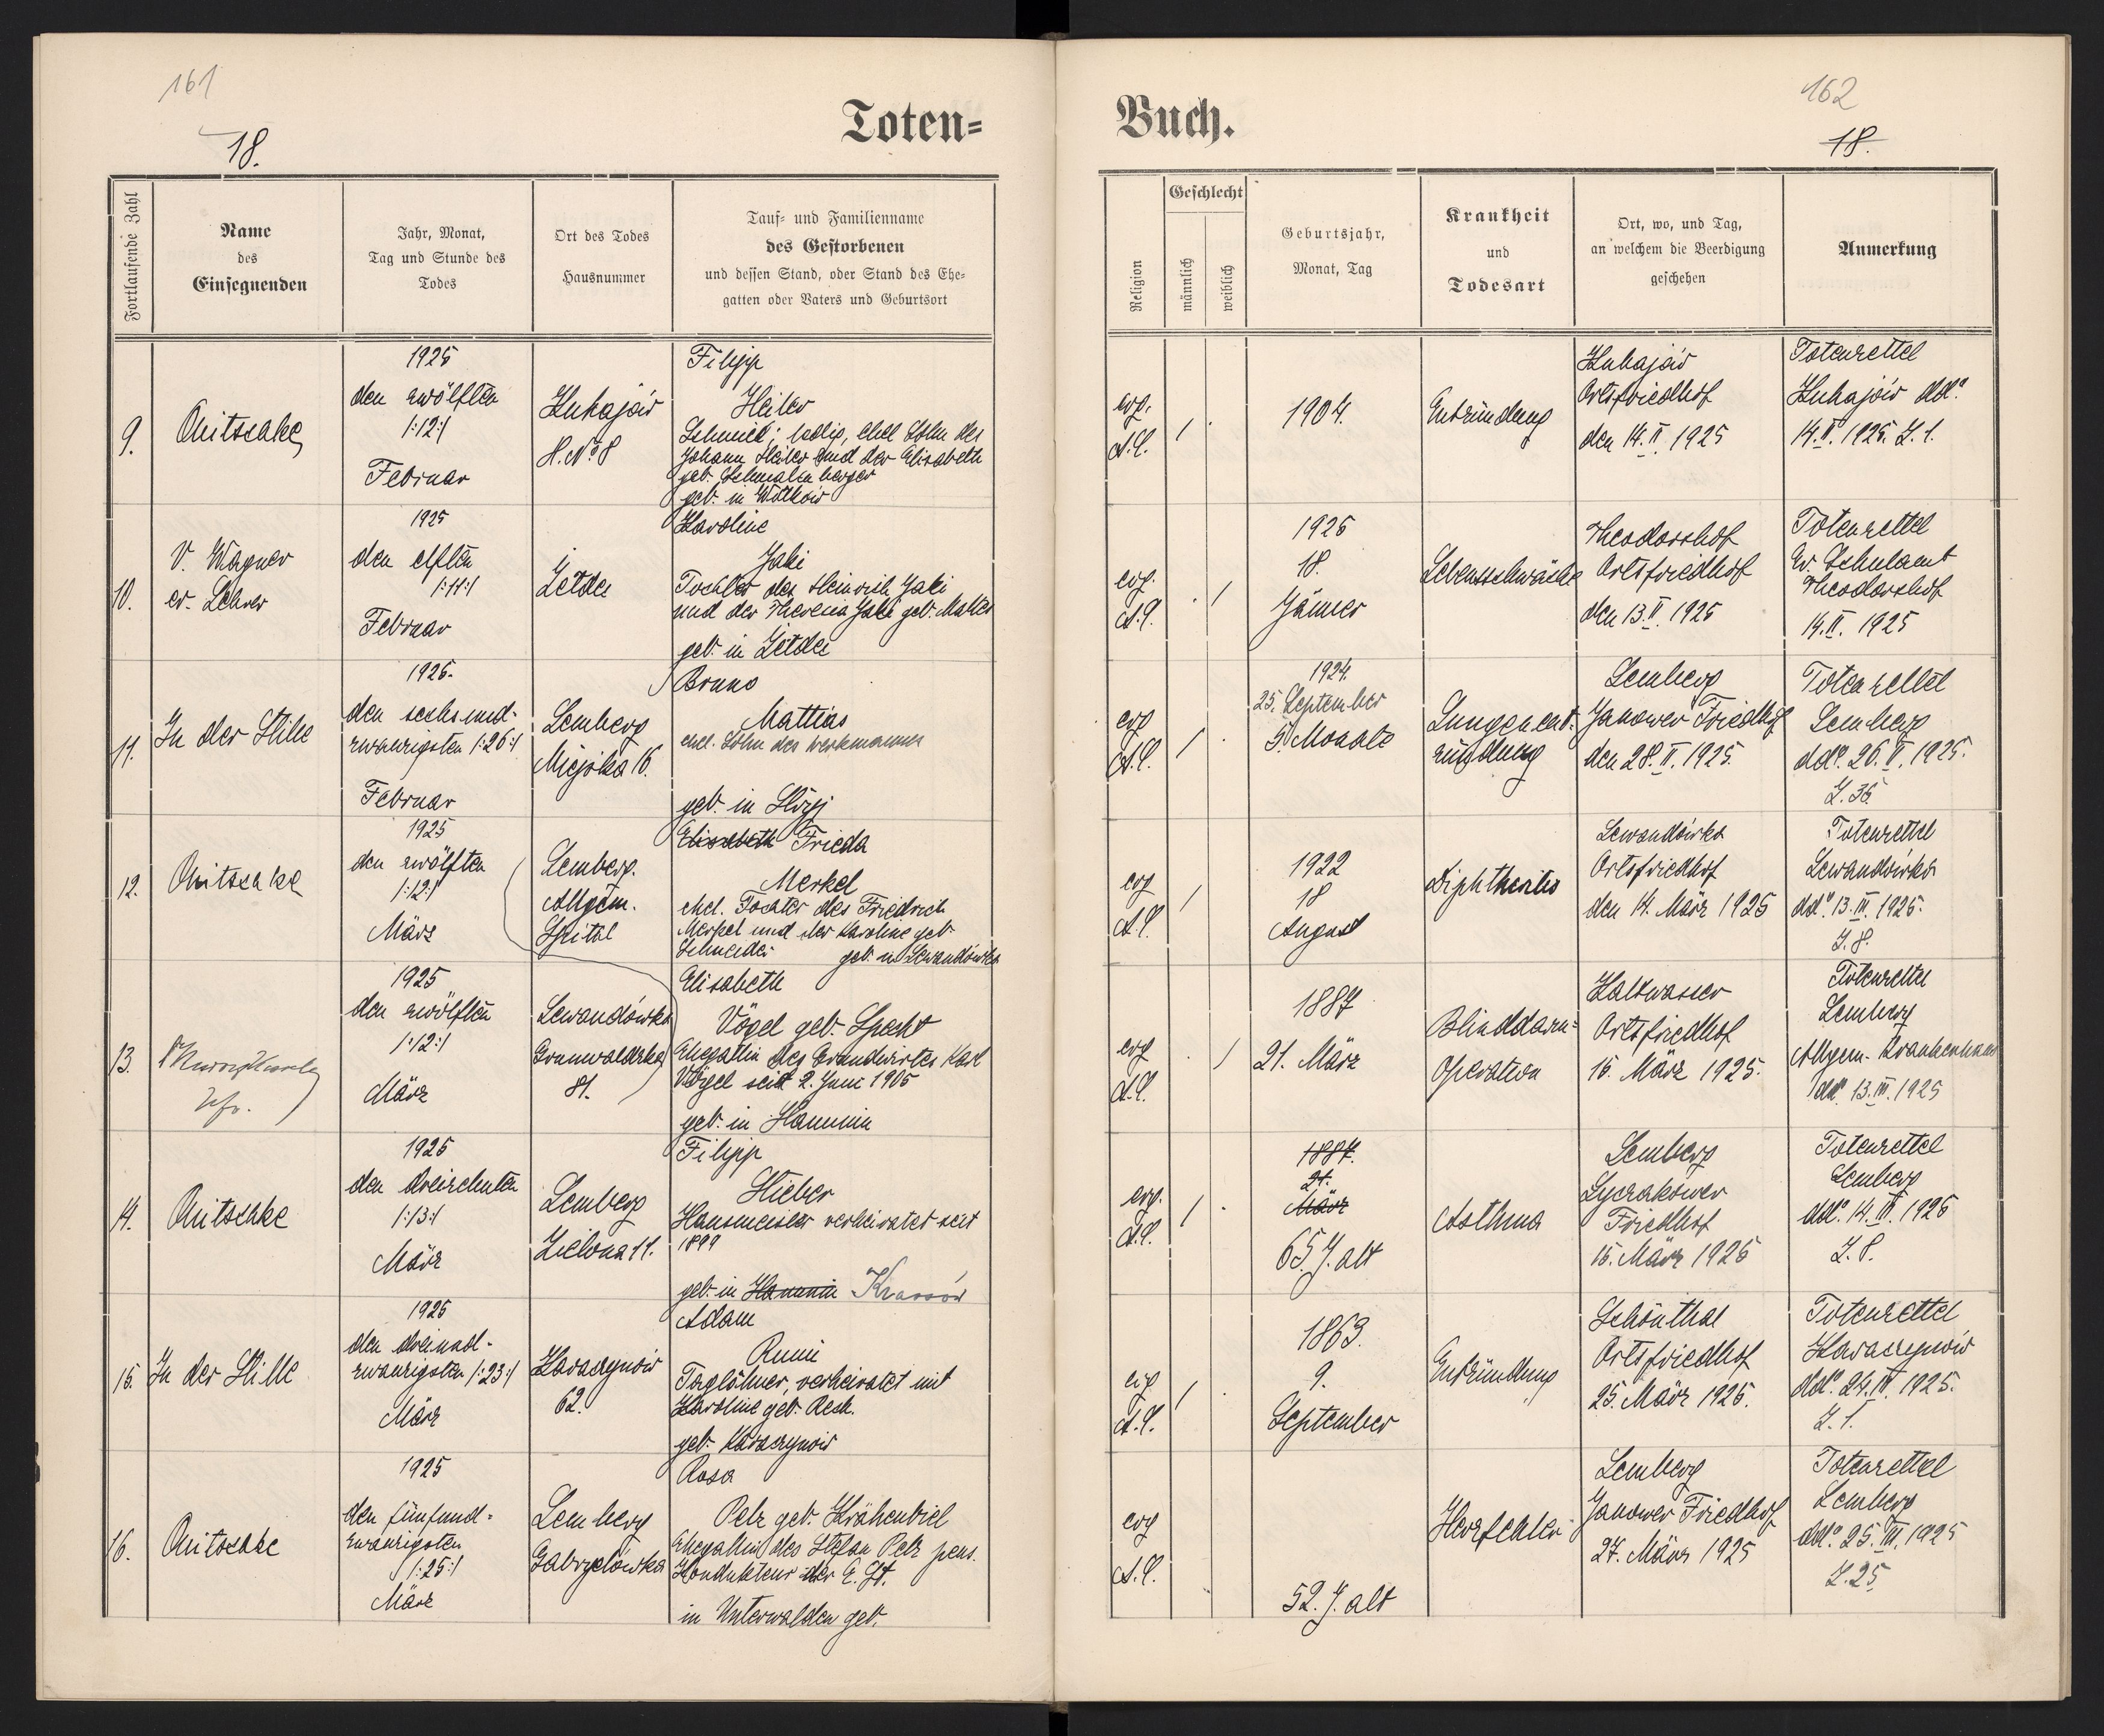 161
18.
Toten=
Fortlaufende Zahl
Name
des
Einsegnenden
Jahr, Monat,
Tag und Stunde des
Todes
Ort des Todes
Hausnummer
Tauf= und Familienname
des Gestorbenen
und dessen Stand, oder Stand des Ehe=
gatten oder Vaters und Geburtsort
9.
1925
den zwölften
1:12:1
Februar
H. No 8
Filipp
Heiler
Schmied; ledig, ehel Sohn des
Johann Heiler und der Elisabeth
geb.
geb. in Witków
10.
V. Wagner
ev. Lehrer
1925
den elften
1:11:1
Februar
Karoline
Jaki
Tochter des Heinrich Jaki
und der Theresia Jaki geb.
geb. in
11.
In der Stille
1925.
den sechsund-
zwanzigsten 1:26:1
Februar
Lemberg
16.
Bruno
Mattias
ehel. Sohn des Werkmannes
geb. in Stryj
12.
1925
den zwölften
1:12:1
März
Lemberg.
Allgem.
Spital
Elisabeth Frieda
Merkel
ehel. Tochter des Friedrich
Merkel und der Karoline geb.
Schneider geb. in Lewandówka
13.
1925
den zwölften
1:12:1
März
Lewandówka
Grunwaldzka
81.
Elisabeth
Vögel geb. Specht
Ehegattin des Grundwirtes Karl
Vögel seit 2. Juni 1905
geb. in Hanunin
14.
1925
den dreizehnten
1:13:1
März
Lemberg
Zielona 11.
Filipp
Stieber
Hausmeister verheiratet seit
1899
geb. in Hanunin Krassów
15.
In der Stille
1925
den dreiund-
zwanzigsten 1:23:1
März
62.
Adam
Taglöhner, verheiratet mit
Karoline geb. Rech.
geb.
16.
1925
den fünfund-
zwanzigsten
1:25:1
März
Lemberg
Gabryelówka
Rosa
Pelz geb. Krähenbiel
Ehegattin des Stefan Pelz pens.
Kondukteurs der E. St.
in Unterwalden geb.
162
18.
Buch.
Religion
Geschlecht
männlich
weiblich
Geburtsjahr,
Monat, Tag
Krankheit
und
Todesart
Ort, wo, und Tag,
an welchem die Beerdigung
geschehen
Anmerkung
evg.
A.C.
1904.
Entzündung
Ortsfriedhof
den 14. II. 1925
Totenzettel
ddo
14. II. 1925. Z. 1.
evg.
A.C.
1925
18.
Jänner
Lebensschwäche
Theodorshof
Ortsfriedhof
den 13. II. 1925
Totenzettel
Ev. Schulamt
Theodorshof
14. II. 1925
evg
A.C.
1924.
25. September
5. Monate
Lungenent-
zündung
Lemberg
Janower Friedhof
den 28. II. 1925.
Totenzettel
Lemberg
ddo. 26. II. 1925.
Z. 36
evg
A.C.
1922
18
August
Diphtheritis
Lewandówka
Ortsfriedhof
den 14. März 1925
Totenzettel
Lewandówka
ddo. 13. III. 1925.
Z. 8.
evg
A.C.
1887
21. März
Blinddarm-
Operation
Kaltwasser
Ortsfriedhof
15. März 1925.
Totenzettel
Lemberg
Allgem. Krankenhaus
ddo. 13. III. 1925
evg.
A.C.
1887.
21.
März
65. J. alt
Asthma
Lemberg
Lyczakower
Friedhof
15. März 1925
Totenzettel
Lemberg
ddo. 14. III. 1925
Z. 8.
evg
A.C.
1863.
9.
September
Entzündung
Schönthal
Ortsfriedhof
25. März 1925.
Totenzettel
Z. 1.
evg
A.C.
52. J. alt
Herzfehler
Lemberg
Janower Friedhof
27. März 1925
Totenzettel
Lemberg
ddo. 25. III. 1925
Z. 25